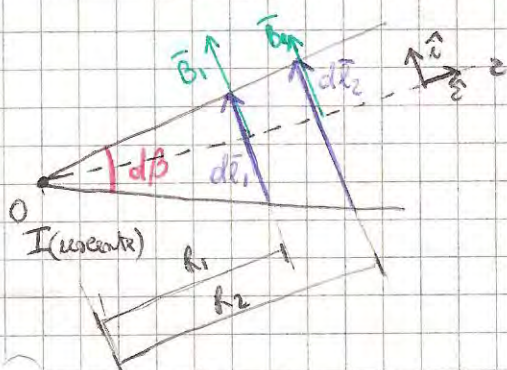 B̄₁
B̄₂
dl̄₂
î
r̂
r
dβ
dl̄₁
O
I (uscente)
R₁
R₂